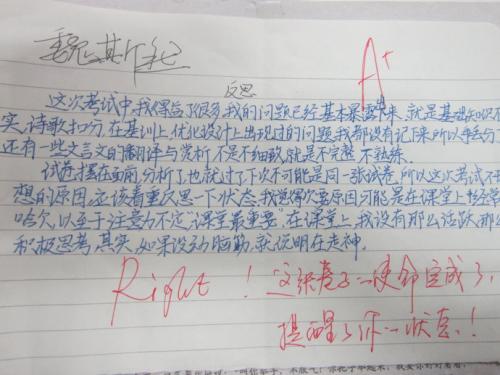 A+
反思
这次考试中我得与了很多我的问题已经基本暴露下来,就是基础知识不
实,诗歌扣分,在基训上,优化设计上出现过的问题,我都没有记下来所以丢分了
还有一些文言文的翻译与赏析不是不细致就是不完整不熟练.
试卷摆在面前分析了也就过了下次不可能是同一张试卷,所以这次考试不
想的原因,应该着重反思一下状态,我觉得次要原因可能是在课堂上经常
哈欠,以至于注意力不定“课堂最重要”在课堂上,我没有那么活跃那么
积极思考,其实,如果没动脑筋,就说明在走神.
Right ! 这张卷子一使命完成了,
提醒了你一状态!